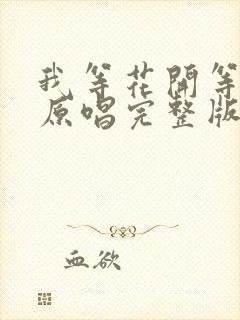 我等花開等
原唱完整版
血欲